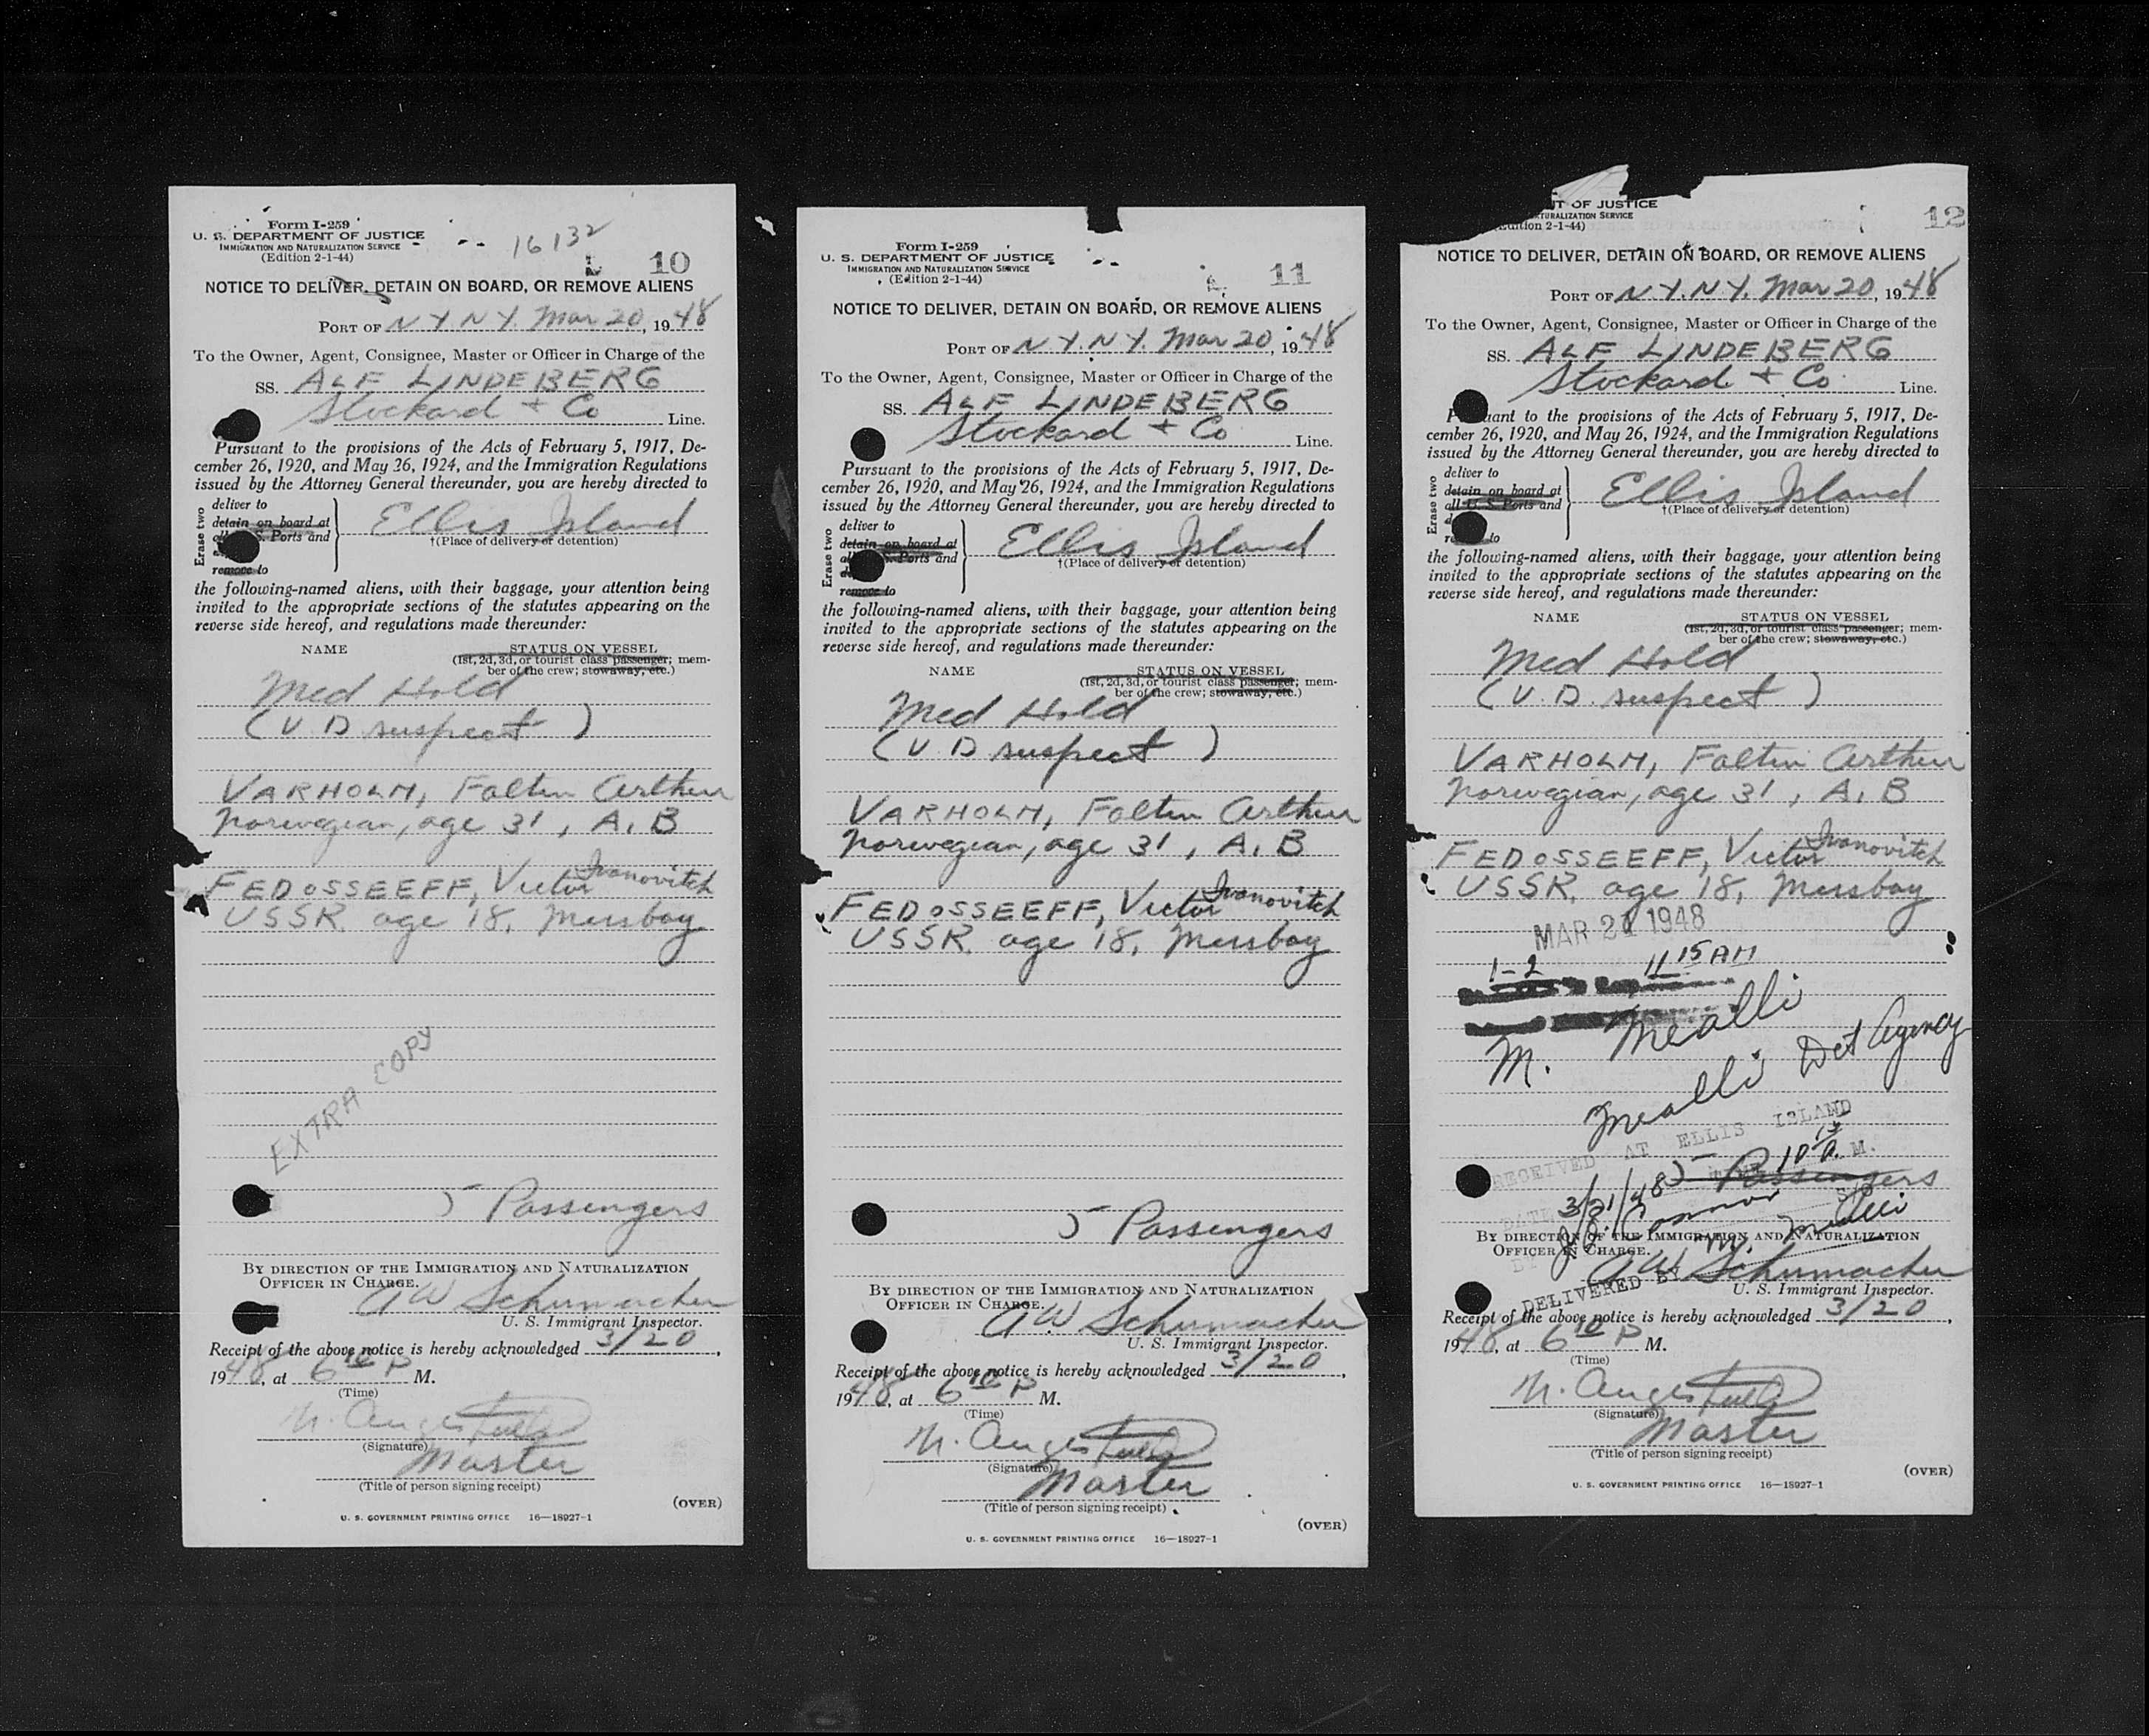 Form I-259
U. S. DEPARTMENT OF JUSTICE
IMMIGRATION AND NATURALIZATION SERVICE
(Edition 2-1-44)
16132
L 10
NOTICE TO DELIVER, DETAIN ON BOARD, OR REMOVE ALIENS
PORT OF N Y. N Y. Mar 20, 1948
To the Owner, Agent, Consignee, Master or Officer in Charge of the
SS. ALF LINDEBERG
Stockard + Co Line.
Pursuant to the provisions of the Acts of February 5, 1917, De-
cember 26, 1920, and May 26, 1924, and the Immigration Regulations
issued by the Attorney General thereunder, you are hereby directed to
Erase two
deliver to
detain on board at
all U. S. Ports and
remove to
Ellis Island
†(Place of delivery or detention)
the following-named aliens, with their baggage, your attention being
invited to the appropriate sections of the statutes appearing on the
reverse side hereof, and regulations made thereunder:
NAME STATUS ON VESSEL
(1st, 2d, 3d, or tourist class passenger; mem-
ber of the crew; stowaway, etc.)
Med Hold
(V. D suspect)
VARHOLM, Faltin Arthur
Norwegian, age 31, A. B
FEDOSSEEFF, Victor Ivanovitch
USSR. age 18, Messboy
EXTRA COPY
5 Passengers
BY DIRECTION OF THE IMMIGRATION AND NATURALIZATION
OFFICER IN CHARGE.
A W Schumacher
U. S. Immigrant Inspector.
Receipt of the above notice is hereby acknowledged 3/20,
1948, at 6 10 P M.
(Time)
(Signature)
Master
(Title of person signing receipt)
(OVER)
U. S. GOVERNMENT PRINTING OFFICE 16—18927-1
Form I-259
U. S. DEPARTMENT OF JUSTICE
IMMIGRATION AND NATURALIZATION SERVICE
(Edition 2-1-44)
L 11
NOTICE TO DELIVER, DETAIN ON BOARD, OR REMOVE ALIENS
PORT OF N Y. N Y. Mar 20, 1948
To the Owner, Agent, Consignee, Master or Officer in Charge of the
SS. ALF LINDEBERG
Stockard + Co Line.
Pursuant to the provisions of the Acts of February 5, 1917, De-
cember 26, 1920, and May 26, 1924, and the Immigration Regulations
issued by the Attorney General thereunder, you are hereby directed to
Erase two
deliver to
detain on board at
all U. S. Ports and
remove to
Ellis Island
†(Place of delivery or detention)
the following-named aliens, with their baggage, your attention being
invited to the appropriate sections of the statutes appearing on the
reverse side hereof, and regulations made thereunder:
NAME STATUS ON VESSEL
(1st, 2d, 3d, or tourist class passenger; mem-
ber of the crew; stowaway, etc.)
Med Hold
(V. D suspect)
VARHOLM, Faltin Arthur
Norwegian, age 31, A. B
FEDOSSEEFF, Victor Ivanovitch
USSR. age 18, Messboy
5 Passengers
BY DIRECTION OF THE IMMIGRATION AND NATURALIZATION
OFFICER IN CHARGE.
A W Schumacher
U. S. Immigrant Inspector.
Receipt of the above notice is hereby acknowledged 3/20,
1948, at 6 10 P M.
(Time)
(Signature)
Master
(Title of person signing receipt)
(OVER)
U. S. GOVERNMENT PRINTING OFFICE 16—18927-1
OF JUSTICE
SERVICE
2-1-44)
12
NOTICE TO DELIVER, DETAIN ON BOARD, OR REMOVE ALIENS
PORT OF N Y. N Y. Mar 20, 1948
To the Owner, Agent, Consignee, Master or Officer in Charge of the
SS. ALF LINDEBERG
Stockard + Co Line.
Pursuant to the provisions of the Acts of February 5, 1917, De-
cember 26, 1920, and May 26, 1924, and the Immigration Regulations
issued by the Attorney General thereunder, you are hereby directed to
Erase two
deliver to
detain on board at
all U. S. Ports and
Ellis Island
†(Place of delivery or detention)
the following-named aliens, with their baggage, your attention being
invited to the appropriate sections of the statutes appearing on the
reverse side hereof, and regulations made thereunder:
NAME STATUS ON VESSEL
(1st, 2d, 3d, or tourist class passenger; mem-
ber of the crew; stowaway, etc.)
Med Hold
(V. D. suspect)
VARHOLM, Faltin Arthur
Norwegian, age 31, A. B
FEDOSSEEFF, Victor Ivanovitch
USSR. age 18, Messboy
MAR 21 1948
1-2 11 15 AM
M. Mealli
Mealli Det Agency
RECEIVED AT ELLIS ISLAND
3/21/48 10 15 A. M.
5 Passengers
J. J. Connor
M. Mealli
BY DIRECTION OF THE IMMIGRATION AND NATURALIZATION
OFFICER IN CHARGE.
A W Schumacher
DELIVERED BY
U. S. Immigrant Inspector.
Receipt of the above notice is hereby acknowledged 3/20,
1948, at 6 10 P M.
(Time)
(Signature)
Master
(Title of person signing receipt)
(OVER)
U. S. GOVERNMENT PRINTING OFFICE 16—18927-1